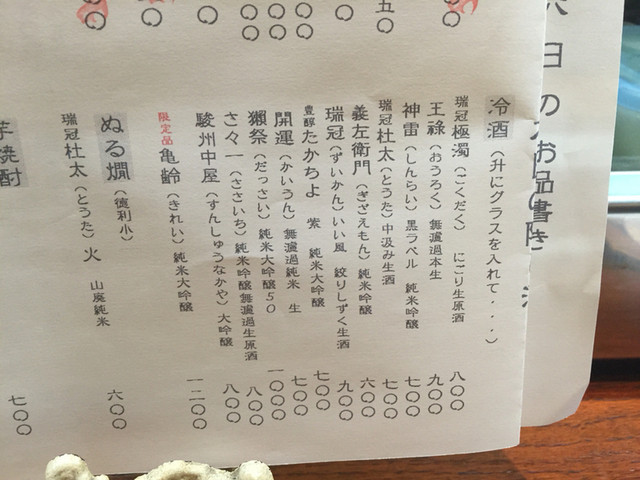 本日のお品書き
冷酒(升にグラスを入れて・・・)
瑞冠 極濁(ごくだく) にごり生原酒 八〇〇
王祿(おうろく) 無濾過本生 九〇〇
神雷(しんらい) 黒ラベル 純米吟醸 七〇〇
瑞冠 杜太(とうた) 中汲み生酒 七〇〇
義左衛門(ぎざえもん) 純米吟醸 六〇〇
瑞冠(ずいかん) いい風 絞りしずく生酒 九〇〇
豊醇 たかちよ 紫 純米大吟醸 七〇〇
開運(かいうん) 無濾過純米 生 七〇〇
獺祭(だっさい) 純米大吟醸50 一〇〇〇
ささ一(ささいち) 純米吟醸無濾過生原酒 八〇〇
駿州中屋(すんしゅうなかや) 大吟醸 八〇〇
限定品 亀齢(きれい) 純米大吟醸 一二〇〇
ぬる燗(徳利小)
瑞冠 杜太(とうた) 火 山廃純米 六〇〇
芋焼酎
七〇〇